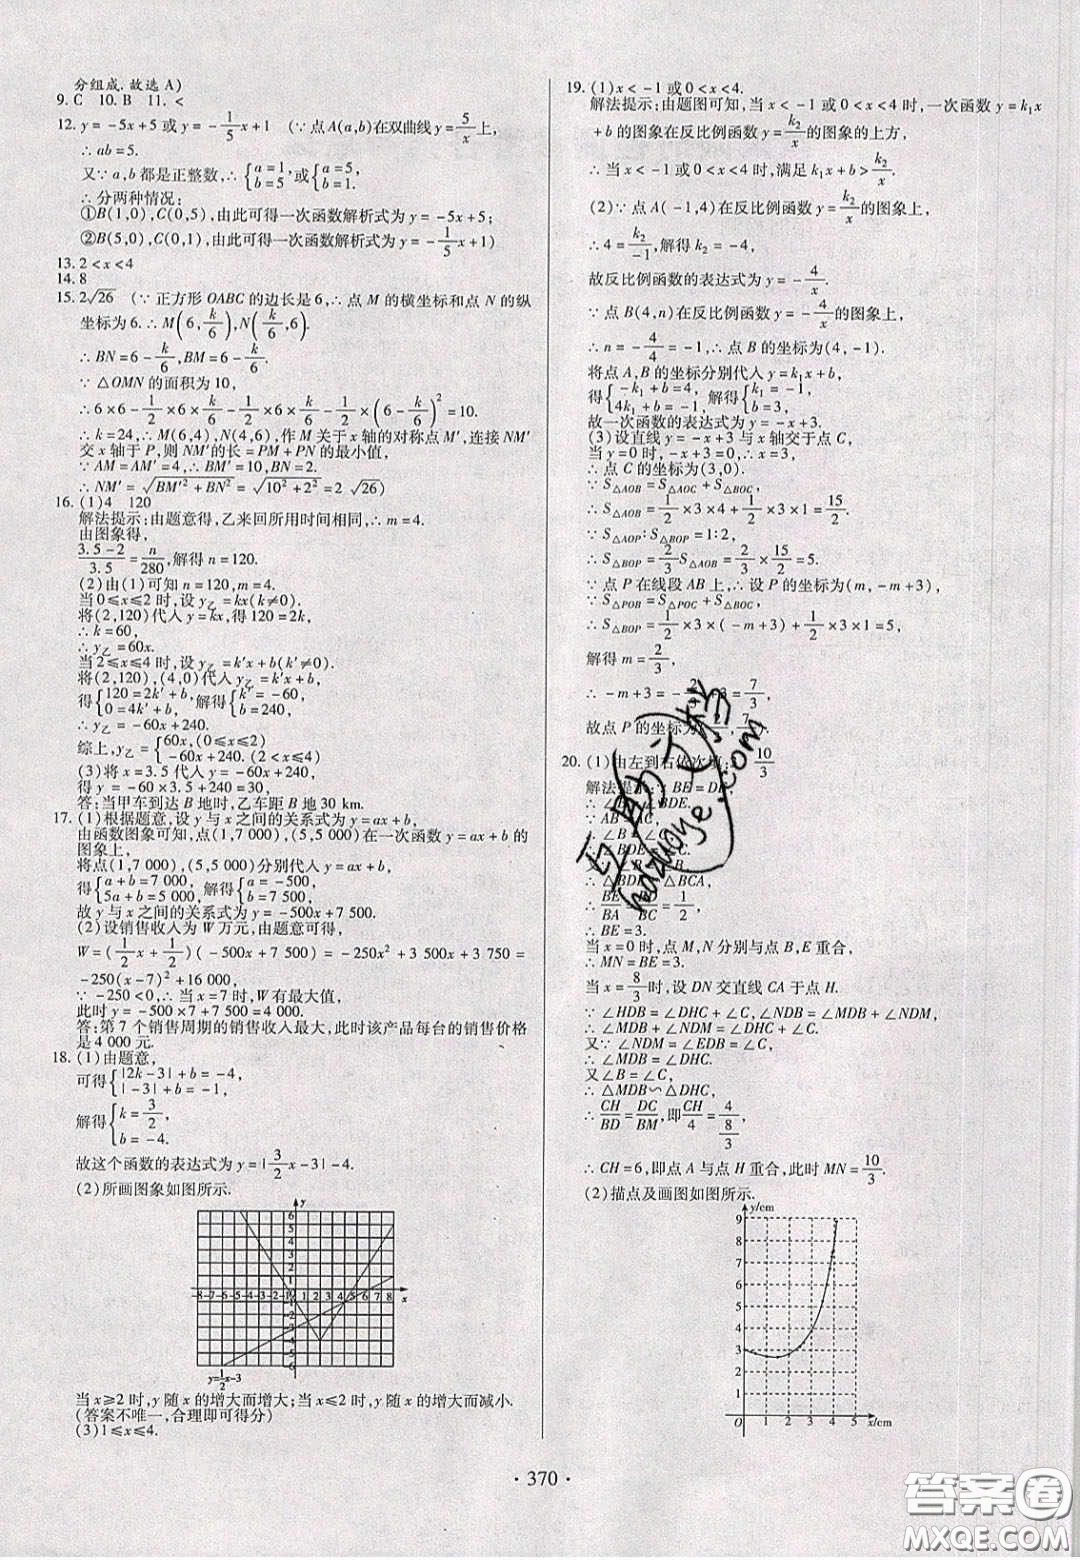 分组成. 故选 A)
9. C  10. B  11. <
12. y = -5x+5 或 y = -1/5x+1  (∵ 点 A(a,b)在双曲线 y = 5/x 上,
∴ ab = 5.
又∵ a,b 都是正整数, ∴ {a=1, b=5, 或 {a=5, b=1.
∴ 分两种情况:
①B(1,0),C(0,5),由此可得一次函数解析式为 y = -5x+5;
②B(5,0),C(0,1),由此可得一次函数解析式为 y = -1/5x+1)
13. 2<x<4
14. 8
15. 2√26  (∵ 正方形 OABC 的边长是 6,∴ 点 M 的横坐标和点 N 的纵
坐标为 6. ∴ M(6, k/6), N(k/6, 6).
∴ BN = 6 - k/6, BM = 6 - k/6.
∵ △OMN 的面积为 10,
∴ 6×6 - 1/2×6×k/6 - 1/2×6×k/6 - 1/2×(6 - k/6)² = 10.
∴ k = 24, ∴ M(6,4), N(4,6), 作 M 关于 x 轴的对称点 M′, 连接 NM′
交 x 轴于 P, 则 NM′的长 = PM+PN 的最小值,
∵ AM = AM′ = 4, ∴ BM′ = 10, BN = 2.
∴ NM′ = √(BM′²+BN²) = √(10²+2²) = 2√26)
16. (1)4  120
解法提示:由题意得,乙来回所用时间相同,∴ m = 4.
由图象得,
(3.5-2)/3.5 = n/280, 解得 n = 120.
(2)由(1)可知 n = 120, m = 4.
当 0≤x≤2 时,设 y乙 = kx(k≠0).
将(2,120)代入 y = kx, 得 120 = 2k,
∴ k = 60,
∴ y乙 = 60x.
当 2≤x≤4 时,设 y乙 = k′x+b(k′≠0).
将(2,120),(4,0)代入 y = k′x+b,
得 {120 = 2k′+b, 0 = 4k′+b, 解得 {k′ = -60, b = 240,
∴ y乙 = -60x+240.
综上, y乙 = {60x, (0≤x≤2) -60x+240. (2<x≤4)
(3)将 x = 3.5 代入 y = -60x+240,
得 y = -60×3.5+240 = 30.
答:当甲车到达 B 地时,乙车距 B 地 30 km.
17. (1)根据题意,设 y 与 x 之间的关系式为 y = ax+b,
由函数图象可知,点(1,7 000),(5,5 000)在一次函数 y = ax+b 的
图象上,
将点(1,7 000),(5,5 000)分别代入 y = ax+b,
得 {a+b = 7 000, 5a+b = 5 000, 解得 {a = -500, b = 7 500,
故 y 与 x 之间的关系式为 y = -500x+7 500.
(2)设销售收入为 W 万元,由题意可得,
W = (1/2x+1/2)(-500x+7 500) = -250x²+3 500x+3 750 =
-250(x-7)²+16 000,
∵ -250<0, ∴ 当 x = 7 时, W 有最大值,
此时 y = -500×7+7 500 = 4 000.
答:第 7 个销售周期的销售收入最大,此时该产品每台的销售价格
是 4 000 元.
18. (1)由题意,
可得 {|2k-3|+b = -4, |-3|+b = -1,
解得 {k = 3/2, b = -4.
故这个函数的表达式为 y = |3/2x-3|-4.
(2)所画图象如图所示.
y
6
5
4
3
2
1
-8-7-6-5-4-3-2-1 0 1 2 3 4 5 6 7 8 x
-1
-2
-3
-4
-5
-6
y=1/2x-3
当 x≥2 时,y 随 x 的增大而增大;当 x≤2 时,y 随 x 的增大而减小.
(答案不唯一,合理即可得分)
(3)1≤x≤4.
19. (1)x<-1 或 0<x<4.
解法提示:由题图可知,当 x<-1 或 0<x<4 时,一次函数 y = k₁x
+b 的图象在反比例函数 y = k₂/x 的图象的上方,
∴ 当 x<-1 或 0<x<4 时,满足 k₁x+b > k₂/x.
(2)∵ 点 A(-1,4)在反比例函数 y = k₂/x 的图象上,
∴ 4 = k₂/-1, 解得 k₂ = -4,
故反比例函数的表达式为 y = -4/x.
∵ 点 B(4,n)在反比例函数 y = -4/x 的图象上,
∴ n = -4/4 = -1, ∴ 点 B 的坐标为(4,-1).
将点 A,B 的坐标分别代入 y = k₁x+b,
得 {-k₁+b = 4, 4k₁+b = -1, 解得 {k₁ = -1, b = 3,
故一次函数的表达式为 y = -x+3.
(3)设直线 y = -x+3 与 x 轴交于点 C,
当 y = 0 时, -x+3 = 0, x = 3,
∴ 点 C 的坐标为(3,0).
∵ S△AOB = S△AOC + S△BOC,
∴ S△AOB = 1/2×3×4+1/2×3×1 = 15/2.
∵ S△AOP : S△BOP = 1:2,
∴ S△BOP = 2/3S△AOB = 2/3×15/2 = 5.
∵ 点 P 在线段 AB 上, ∴ 设 P 的坐标为(m,-m+3),
∵ S△POB = S△POC + S△BOC,
∴ S△BOP = 1/2×3×(-m+3)+1/2×3×1 = 5,
解得 m = 2/3,
∴ -m+3 = -2/3+3 = 7/3,
故点 P 的坐标为
20. (1)由左到右依次填: 10/3
解法提示 BE = DE,
∴ ∠B = ∠BDE.
∵ AB =
∴ ∠B = ∠C.
∴ ∠BDE = ∠C.
又∵ ∠B = ∠
∴ △BDE △BCA,
∴ BE/BA = BC = 1/2,
∴ BE = 3.
当 x = 0 时,点 M,N 分别与点 B,E 重合,
∴ MN = BE = 3.
当 x = 8/3 时,设 DN 交直线 CA 于点 H.
∵ ∠HDB = ∠DHC+∠C, ∠NDB = ∠MDB+∠NDM,
∴ ∠MDB+∠NDM = ∠DHC+∠C.
又∵ ∠NDM = ∠EDB = ∠C,
∴ ∠MDB = ∠DHC.
又∠B = ∠C.
∴ △MDB∽△DHC.
∴ CH/BD = DC/BM, 即 CH/4 = 4/(8/3)
∴ CH = 6,即点 A 与点 H 重合,此时 MN = 10/3.
(2)描点及画图如图所示.
y/cm
9
8
7
6
5
4
3
2
1
O 1 2 3 4 5 x/cm
· 370 ·
互助文档
huzuoye.com
答案卷
MXQE.COM